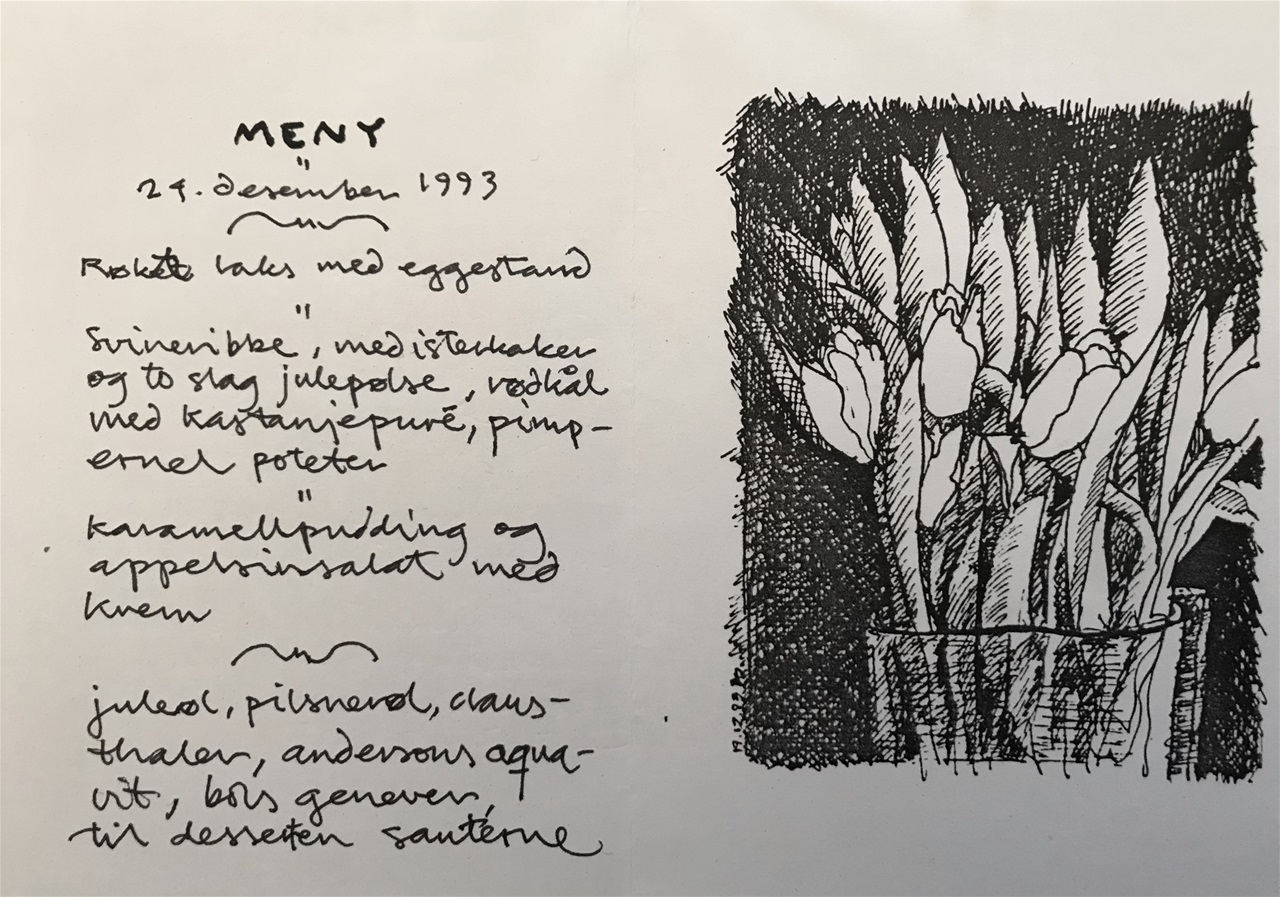 MENY
"
24. desember 1993
Røkt laks med eggestand
"
Svineribbe, medisterkaker
og to slag julepølse, rødkål
med kastanjepuré, pimp-
ernel poteter
"
karamellpudding og
appelsinsalat med
krem
juleøl, pilsnerøl, claus-
thaler, andersons aqua-
vit, bols genever,
til desserten sauterne